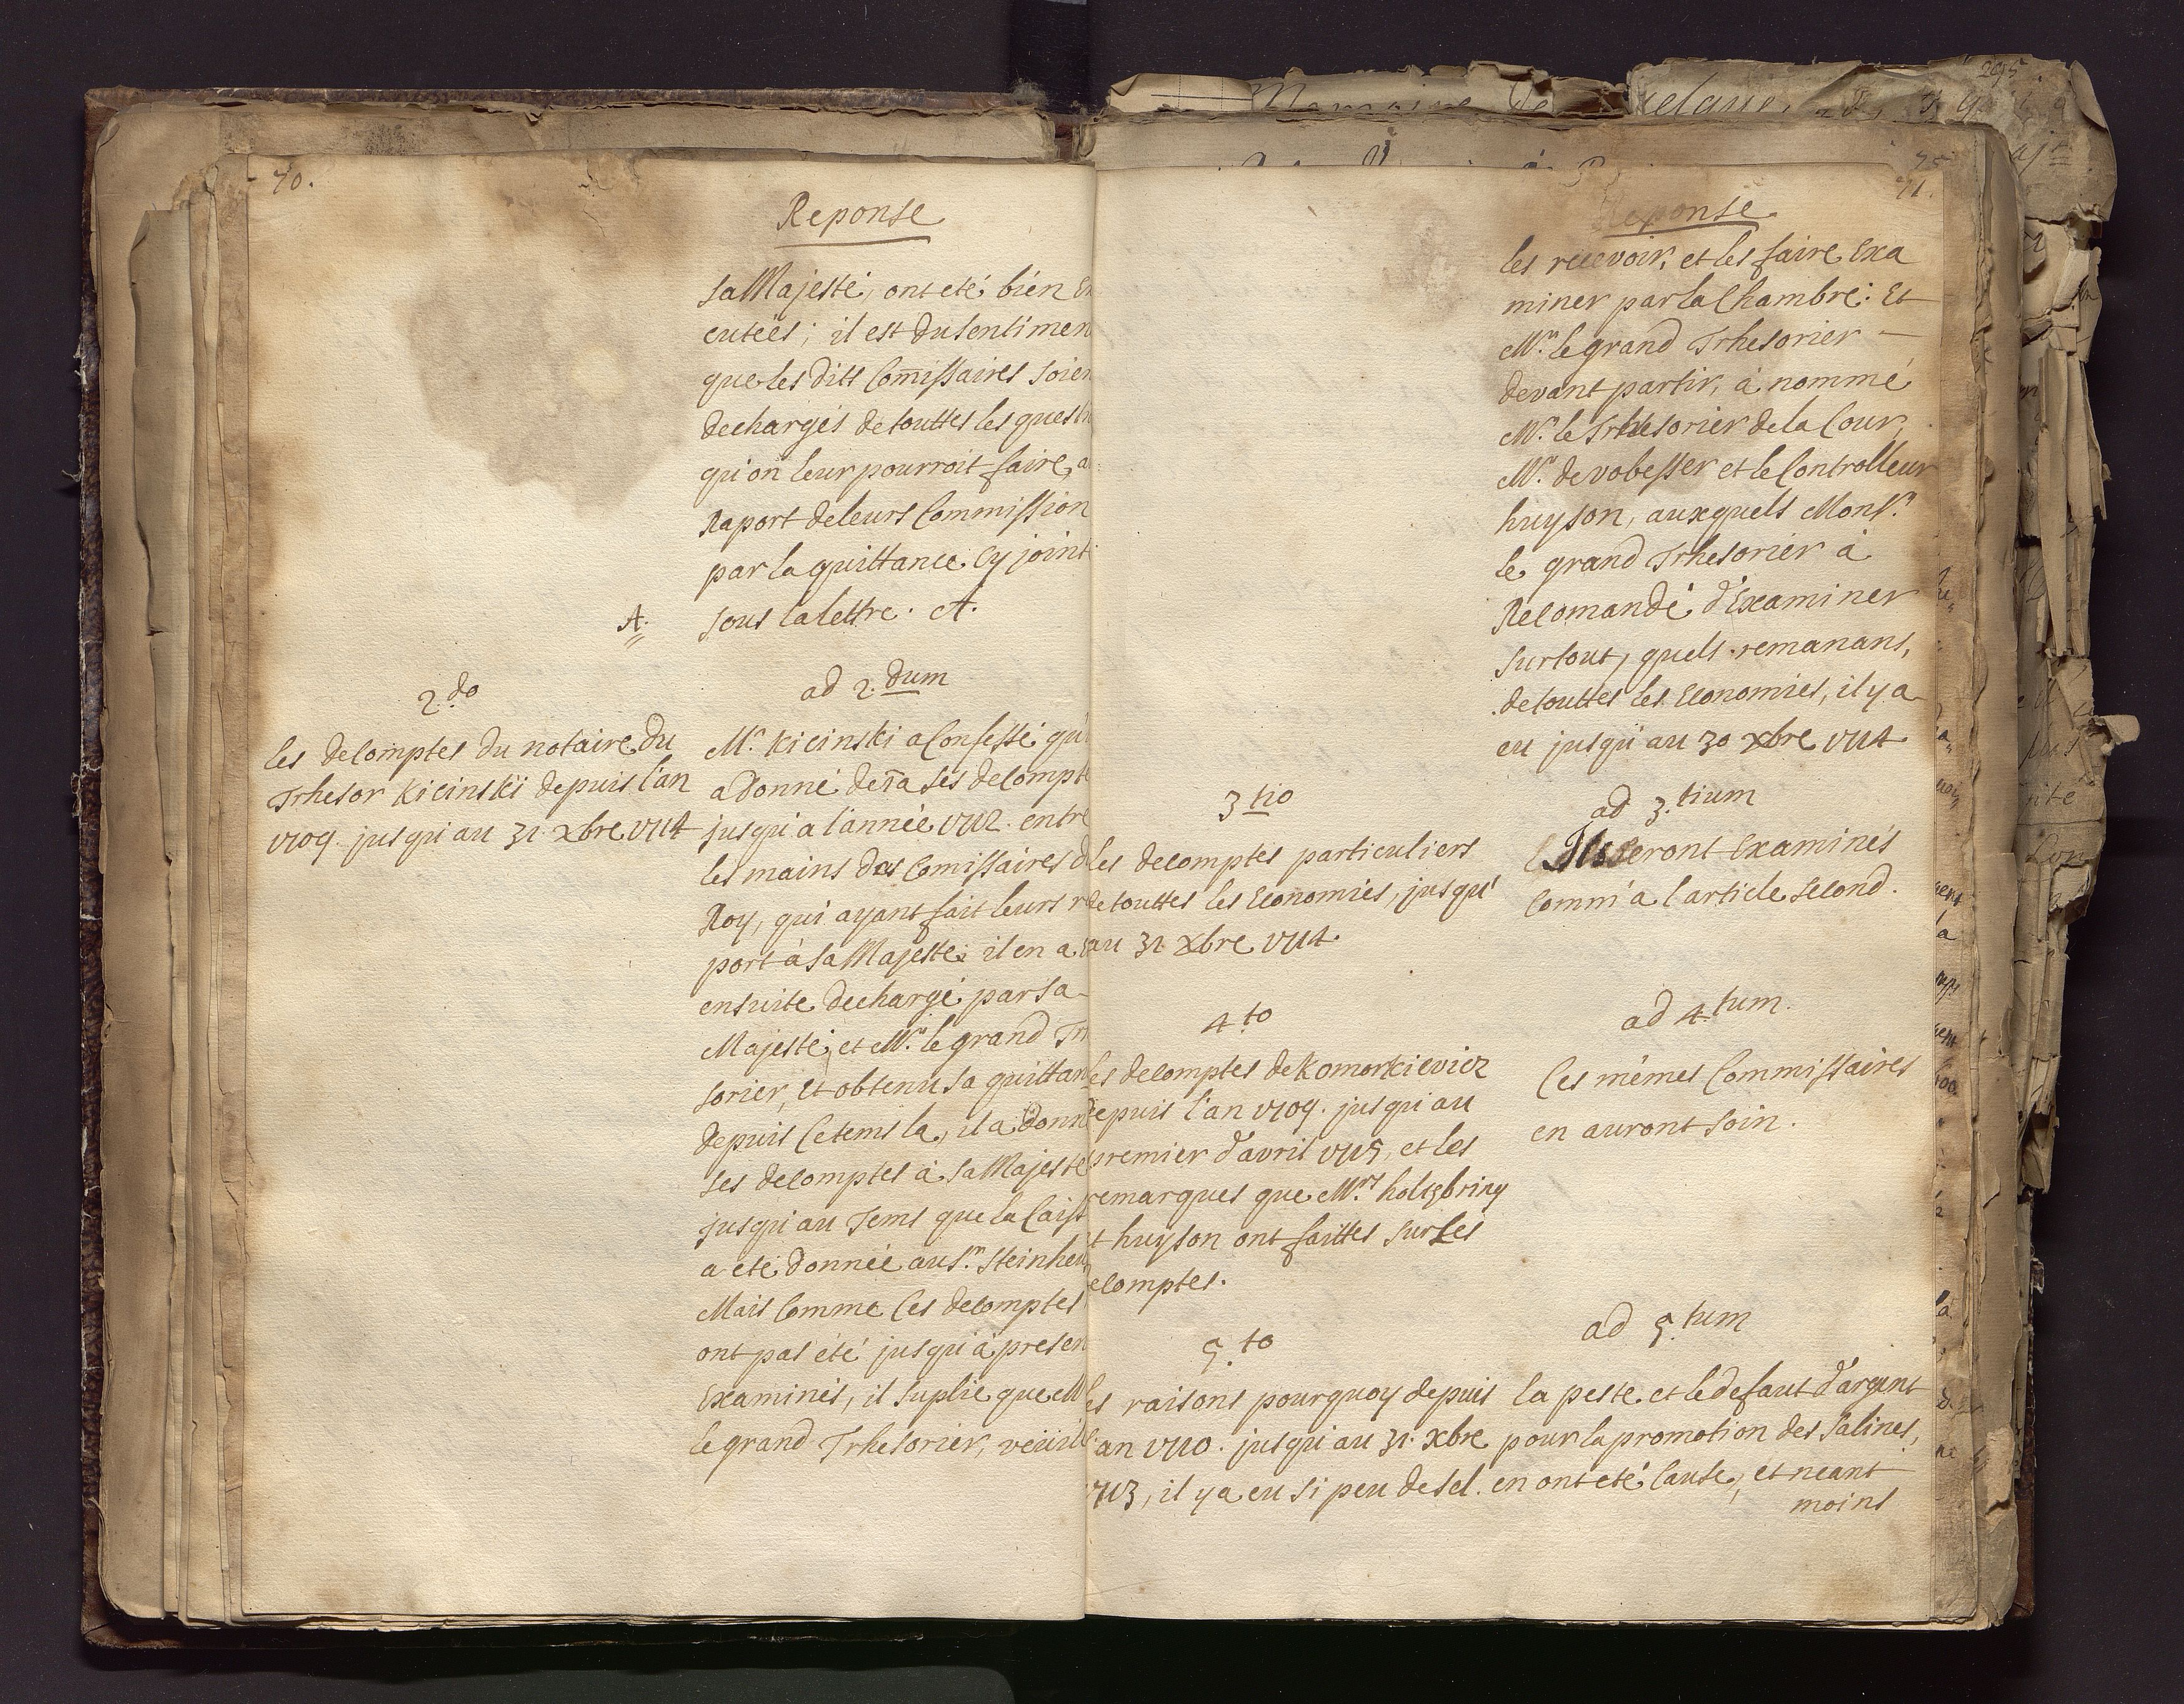 70.
Reponse
sa Majesté, ont eté bién
cuteés; il est du sentimen
que les dits Comissaires soien
dechargés de touttes les quest
qu'on leur pourroit faire, a
Raport de leurs Commission
par la quittance cy joint
A. sous la lettre. A.
2.do
les decomptes du notaire du
Trhesor Kicinski depuis l'an
1709. jusqu'au 31 xbre 1714
ad 2.dum
Mr. Kicinski a Confessé qu'
a donné deia ses decompt
jusqu'a l'année 1712. entre
les mains des Comissaires d
Roy, qui ayant fait leurs r
port á sa Majesté; il en a
ensuite dechargé par sa
Majesté, et Mr. le grand Tr
sorier, et obtenu sa quittan
depuis Ce tems la, il a donn
ses decomptes á sa Majesté
jusqu'au Tems que la Caiss
a eté donnée au Sr. Steinheu
Mais Comme Ces decomptes
ont pas été jusqu'á presen
Examinés, il suplie que M
le grand Trhesorier, veüil
71.
Reponse
les recevoir, et les faire Exa
miner par la Chambre: Et
Mr. le grand Trhesorier —
devant partir, á nommé
Mr. le Trhesorier de la Cour,
Mr. de vobesser et le Controlleur
huyson, auxquels Monsr.
le grand Trhesorier á
Recomandé d'Examiner
surtout, quels remanans,
de touttes les Economies, il y a
eu jusqu'au 30 xbre 1714
3.tio
les decomptes particuliers
de touttes les Economiés, jusqu'
au 31 xbre 1714.
ad 3.tium
Ils seront Examinés
Comm'a l'article second.
4.to
es decomptes de Komorkievicz
depuis l'an 1709. jusqu'au
premier d'avril 1715, et les
remarques que Mrs. holtzbring
t huyson ont faittes sur ses
ecomptes.
ad 4.tum.
Ces mémes Commissaires
en auront soin.
5.to
es raisons pourquoy depuis
an 1710. jusqu'au 31. xbre
1713, il y a eu si peu de sel.
ad 5.tum
la peste et le defaut d'argent
pour la promotion des Salines,
en ont eté Cause, et neant
moins